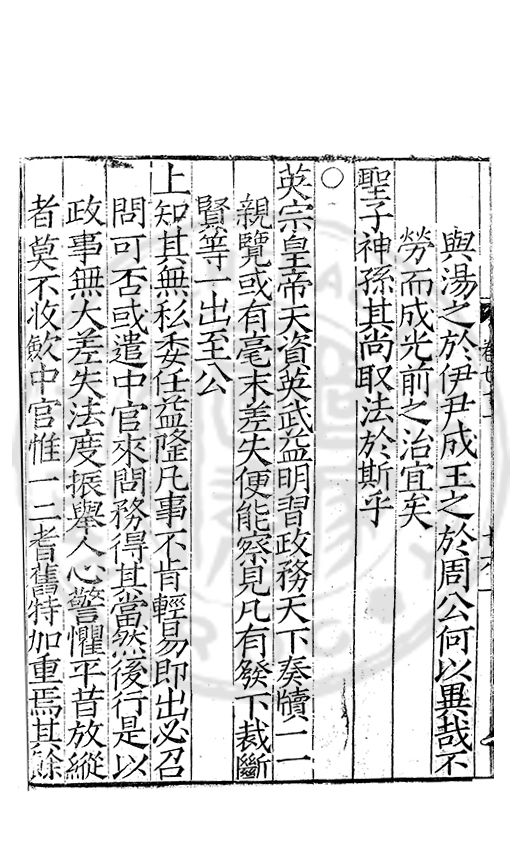 與湯之於伊尹成王之於周公何以異哉不
勞而成光前之治宜矣
聖子神孫其尚取法於斯乎
○
英宗皇帝天資英武益明習政務天下奏牘一一
親覽或有毫末差失便能察見凡有發下裁斷
賢等一出至公
上知其無私委任益隆凡事不肯輕易即出必召
問可否或遣中官來問務得其當然後行是以
政事無大差失法度振舉人心警懼平昔放縱
者莫不收斂中官惟一二者舊特加重焉其餘